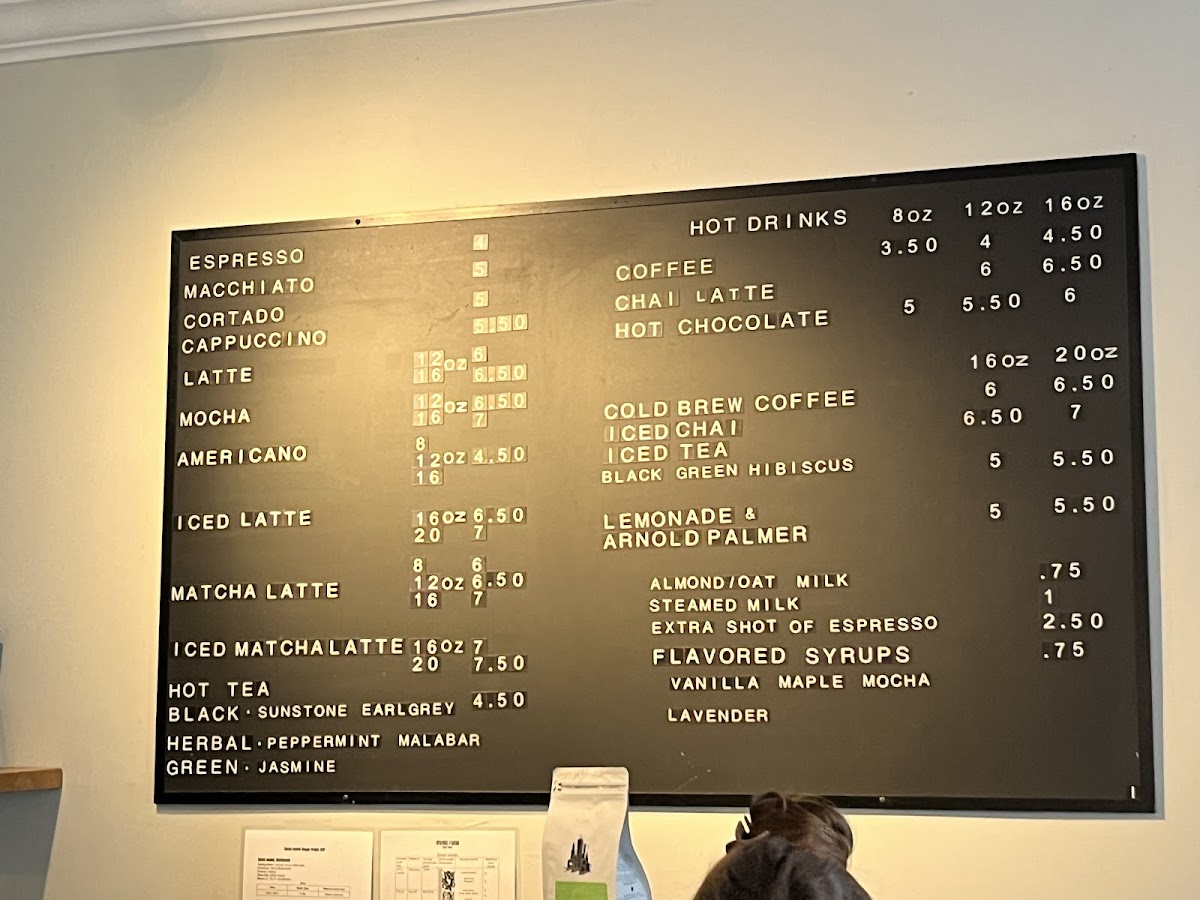 ESPRESSO 4
MACCHIATO 5
CORTADO 5
CAPPUCCINO 5.50
LATTE 12 oz 6
16 6.50
MOCHA 12 oz 6.50
16 7
AMERICANO 8
12 oz 4.50
16
ICED LATTE 16 oz 6.50
20 7
8 6
MATCHA LATTE 12 oz 6.50
16 7
ICED MATCHA LATTE 16 oz 7
20 7.50
HOT TEA
BLACK · SUNSTONE EARLGREY 4.50
HERBAL · PEPPERMINT MALABAR
GREEN · JASMINE
HOT DRINKS 8oz 12oz 16oz
COFFEE 3.50 4 4.50
CHAI LATTE 6 6.50
HOT CHOCOLATE 5 5.50 6
16oz 20oz
COLD BREW COFFEE 6 6.50
ICED CHAI 6.50 7
ICED TEA
BLACK GREEN HIBISCUS 5 5.50
LEMONADE & 5 5.50
ARNOLD PALMER
ALMOND/OAT MILK .75
STEAMED MILK 1
EXTRA SHOT OF ESPRESSO 2.50
FLAVORED SYRUPS .75
VANILLA MAPLE MOCHA
LAVENDER